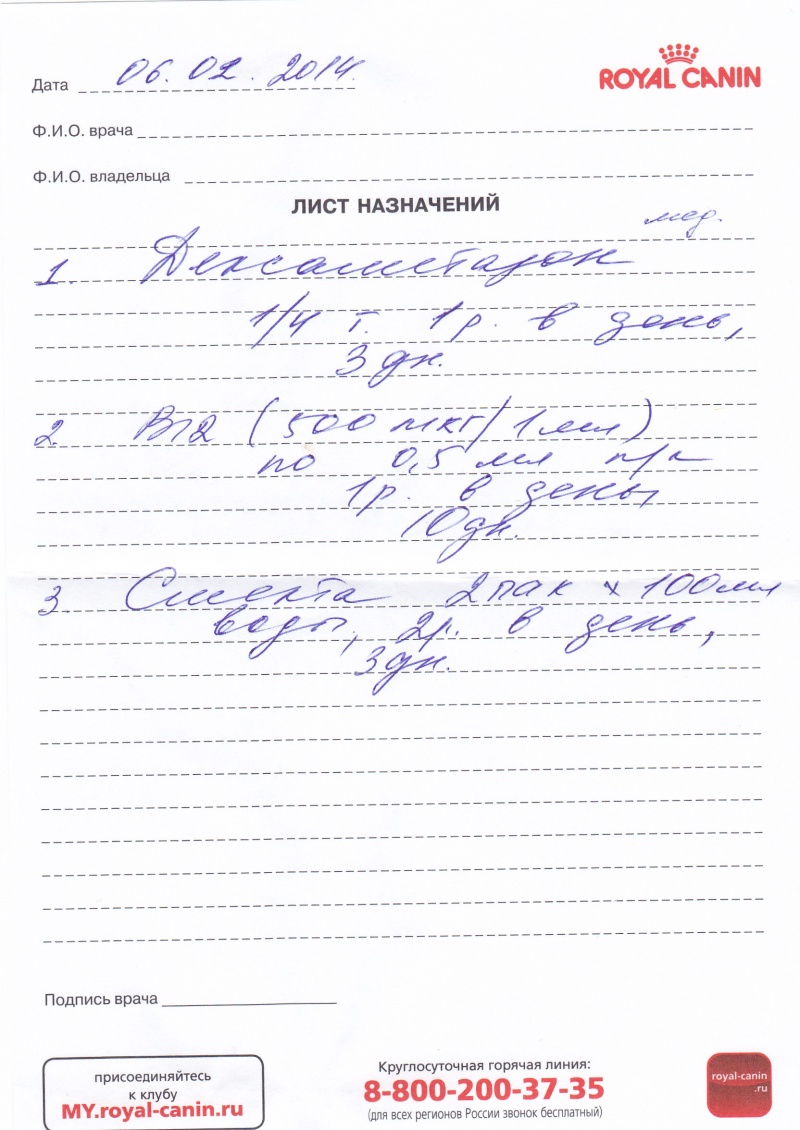 Дата 06.02.2014.
ROYAL CANIN
Ф.И.О. врача
Ф.И.О. владельца
ЛИСТ НАЗНАЧЕНИЙ
1. Дексаметазон
1/4 т. 1р. в день,
3 дн.
2. B12 (500 мкг/1 мл)
по 0,5 мл п/к
1р. в день,
10 дн.
3 Смекта 2 пак x 100 мл
воды, 2р. в день,
3 дн.
Подпись врача
присоединяйтесь
к клубу
MY.royal-canin.ru
Круглосуточная горячая линия:
8-800-200-37-35
(для всех регионов России звонок бесплатный)
royal-canin
.ru